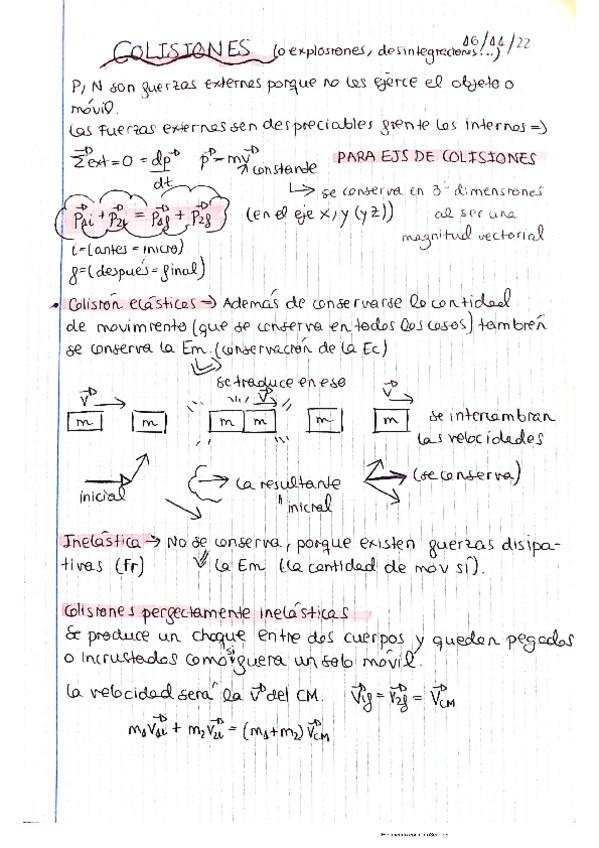 16/11/22
COLISIONES (o explosiones, desintegraciones...)
P, N son fuerzas externas porque no las ejerce el objeto o
móvil.
Las fuerzas externas son despreciables frente las internas =>
Σ⃗ext = 0 = dp⃗/dt p⃗ = mv⃗ constante PARA EJS DE COLISIONES
↳ se conserva en 3 dimensiones
p⃗1i + p⃗2i = p⃗1f + p⃗2f (en el eje x, y (y z)) al ser una
magnitud vectorial
i = (antes = inicio)
f = (después = final)
• Colisión elástica → Además de conservarse la cantidad
de movimiento (que se conserva en todos los casos) también
se conserva la Em. (conservación de la Ec)
se traduce en eso
v⃗ v⃗ v⃗
m m m m m m se intercambian
las velocidades
inicial → la resultante → (se conserva)
" inicial
Inelástica → No se conserva, porque existen fuerzas disipa-
tivas (Fr) la Em (la cantidad de mov sí).
Colisiones perfectamente inelásticas
Se produce un choque entre dos cuerpos y quedan pegados
o incrustados como si fuera un solo móvil.
La velocidad será la v⃗ del CM. v⃗1f = v⃗2f = v⃗CM
m1v⃗1i + m2v⃗2i = (m1+m2) v⃗CM